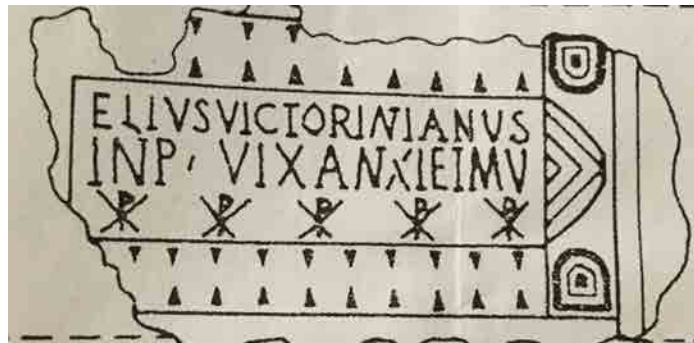 ELIVSVICTORINIANVS
INP, VIXANXIEIMV
☧ ☧ ☧ ☧ ☧